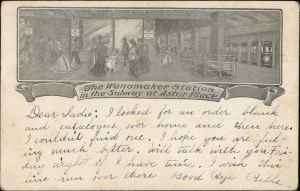 The Wanamaker Station
in the Subway at Astor Place
Dear Sadie; I looked for an order blank
and catalogue over home and there here.
I couldn't find one. I hope you are feel-
ing much better, will talk with you
night if I have time. I wish this
line run over there Good Bye Belle